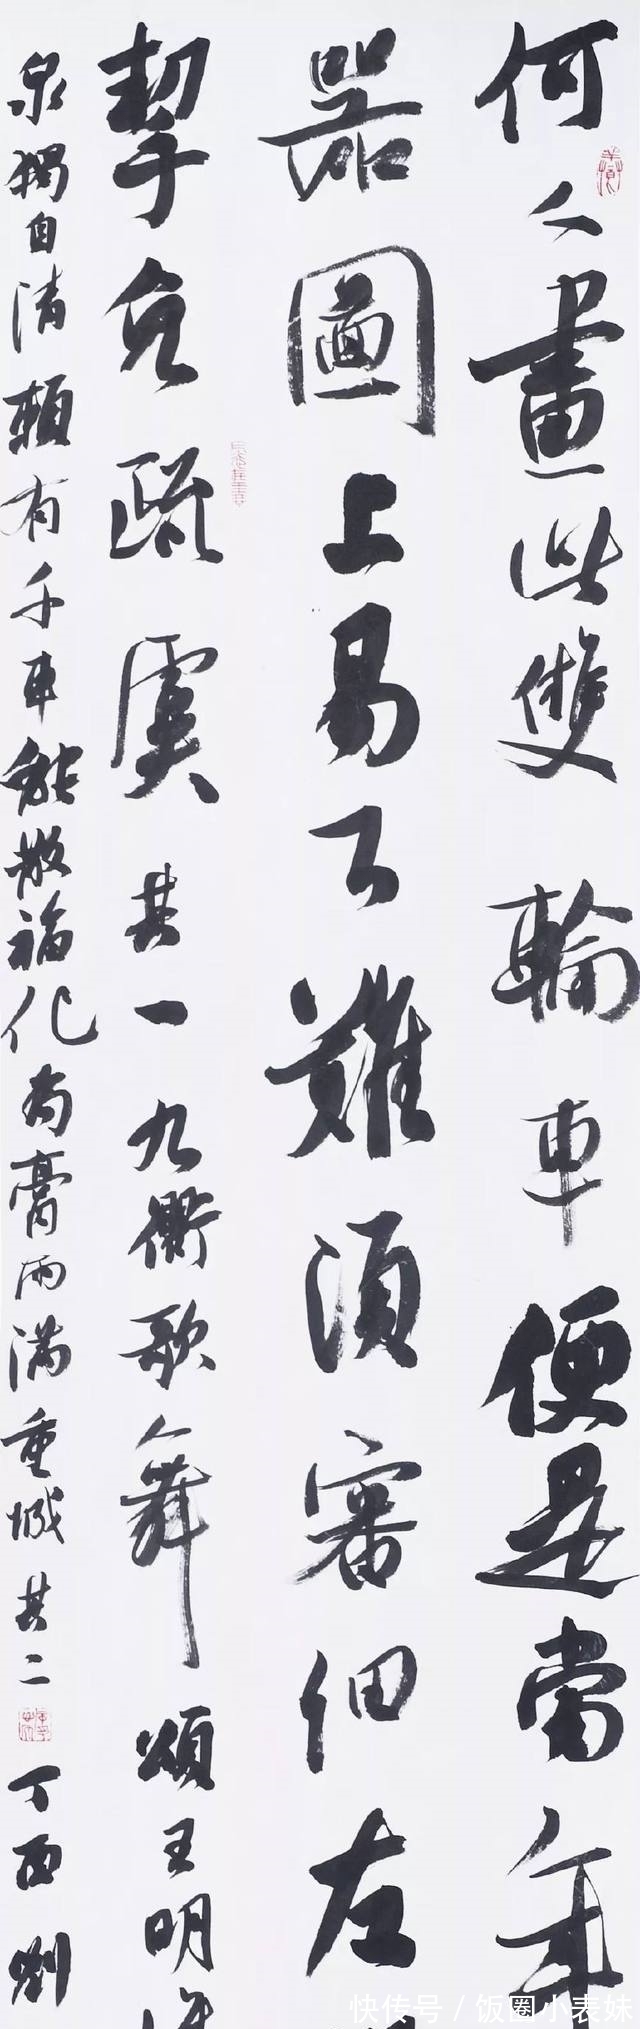 何人畫此雙輪車便是當年
器圖上易下難須審細左
挈免疏虞其一九衢歌舞頌王明
泉獨自清賴有千車能散福化為膏雨滿重城其二丁酉劉
快传号 / 饭圈小表妹